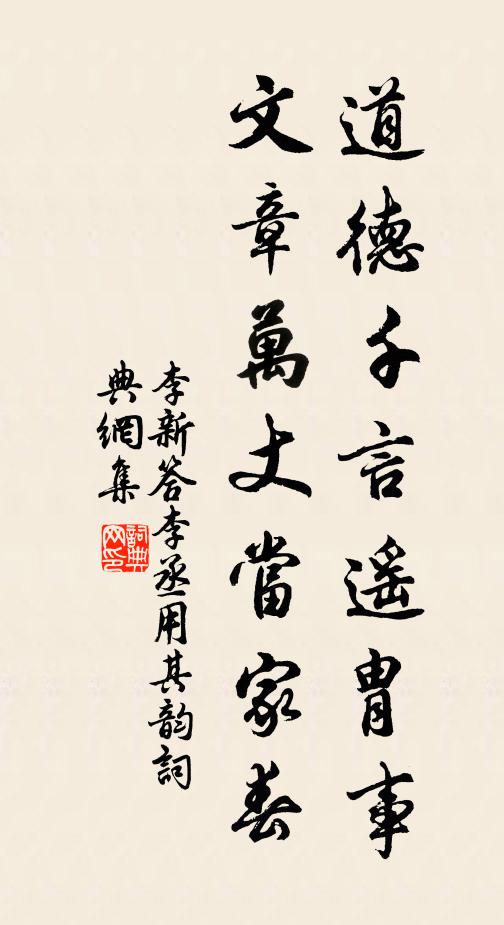 道德千言遥胄事
文章萬丈當家春
李新答李丞用其韵詞
典網集
詞典網印